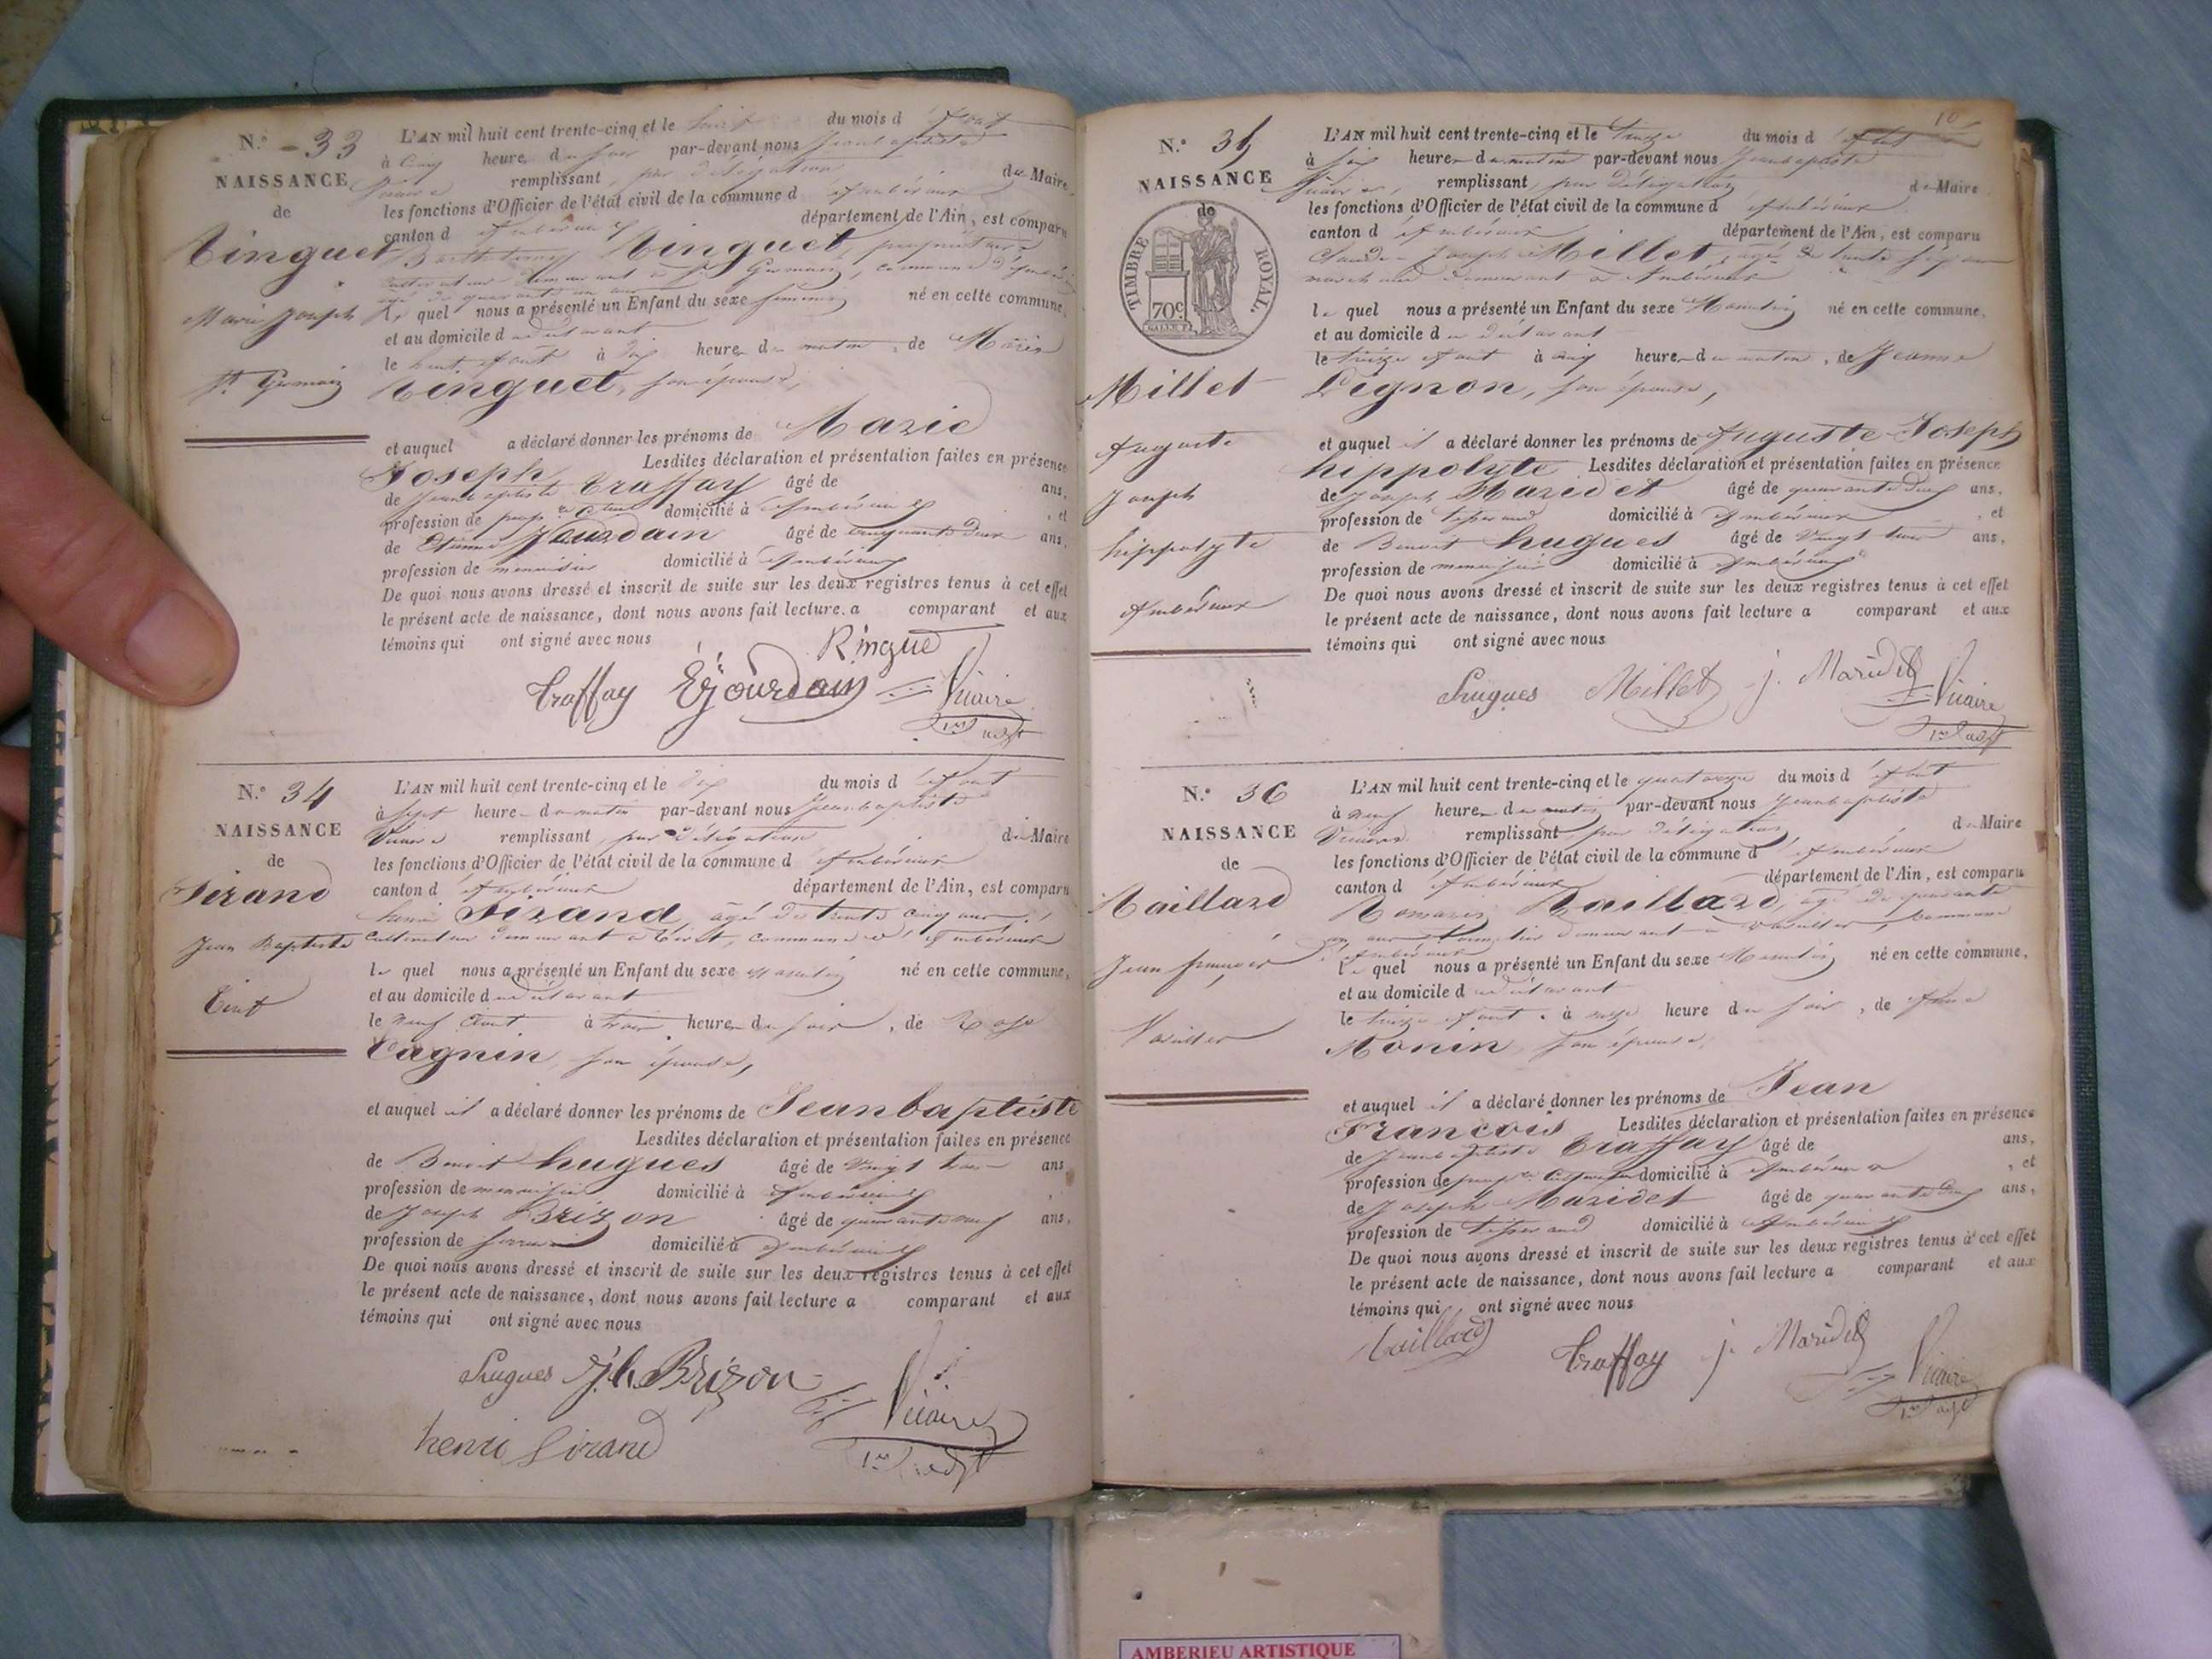 N.° 33
NAISSANCE
de
Ringuet
Marie Joseph
St Germain
L'AN mil huit cent trente-cinq et le huit du mois d'Aout
à cinq heures du soir par-devant nous Jeanbaptiste
Vicaire remplissant, par délégation du Maire,
les fonctions d'Officier de l'état civil de la commune d'Ambérieux
canton d'Ambérieux département de l'Ain, est comparu
Barthélemy Ringuet, propriétaire
cultivateur demeurant à St Germain, commune d'Ambérieux
âgé de quarante un ans
le quel nous a présenté un Enfant du sexe féminin né en cette commune,
et au domicile du déclarant
le huit Aout à dix heures du matin, de Marie
Ringuet, son épouse,
et auquel a déclaré donner les prénoms de Marie
Joseph Lesdites déclaration et présentation faites en présence
de Jeanbaptiste Traffay âgé de ans,
profession de domicilié à Ambérieux, et
de Etienne Jourdain âgé de cinquante deux ans,
profession de menuisier domicilié à Ambérieux
De quoi nous avons dressé et inscrit de suite sur les deux registres tenus à cet effet
le présent acte de naissance, dont nous avons fait lecture a comparant et aux
témoins qui ont signé avec nous
Ringue
Traffay E Jourdain Vicaire
N.° 34
NAISSANCE
de
Sirand
Jean Baptiste
Tiret
L'AN mil huit cent trente-cinq et le dix du mois d'Aout
à sept heures du matin par-devant nous Jeanbaptiste
Vicaire remplissant, par délégation du Maire
les fonctions d'Officier de l'état civil de la commune d'Ambérieux
canton d'Ambérieux département de l'Ain, est comparu
henri Sirand, âgé de trente cinq ans,
cultivateur demeurant à Tiret, commune d'Ambérieux
le quel nous a présenté un Enfant du sexe Masculin né en cette commune,
et au domicile du déclarant
le neuf Aout à trois heures du soir, de Rose
Cagnin, son épouse,
et auquel il a déclaré donner les prénoms de Jeanbaptiste
Lesdites déclaration et présentation faites en présence
de Benoit hugues âgé de vingt trois ans,
profession de menuisier domicilié à Ambérieux,
de Joseph Brizon âgé de quarante neuf ans,
profession de domicilié à Ambérieux
De quoi nous avons dressé et inscrit de suite sur les deux registres tenus à cet effet
le présent acte de naissance, dont nous avons fait lecture a comparant et aux
témoins qui ont signé avec nous
hugues Jh. Brizon
Vicaire
henri Sirand
10
N.° 35
NAISSANCE
de
TIMBRE ROYAL.
70c
Millet
Auguste
Joseph
hippolyte
Ambérieux
L'AN mil huit cent trente-cinq et le treize du mois d'Aout
à six heures du matin par-devant nous Jeanbaptiste
Vicaire, remplissant, par délégation du Maire
les fonctions d'Officier de l'état civil de la commune d'Ambérieux
canton d'Ambérieux département de l'Ain, est comparu
Claude Joseph Millet, âgé de trente six ans
marchand demeurant à Ambérieux
le quel nous a présenté un Enfant du sexe Masculin né en cette commune,
et au domicile du déclarant
le treize Aout à cinq heures du matin, de Jeanne
Pignon, son épouse,
et auquel il a déclaré donner les prénoms de Auguste Joseph
hippolyte Lesdites déclaration et présentation faites en présence
de Joseph Maridet âgé de quarante cinq ans,
profession de tisserand domicilié à Ambérieux, et
de Benoit hugues âgé de vingt trois ans,
profession de menuisier domicilié à Ambérieux
De quoi nous avons dressé et inscrit de suite sur les deux registres tenus à cet effet
le présent acte de naissance, dont nous avons fait lecture a comparant et aux
témoins qui ont signé avec nous
hugues Millet j. Maridet
Vicaire
N.° 36
NAISSANCE
de
Raillard
Jean françois
Vareilles
L'AN mil huit cent trente-cinq et le quatorze du mois d'Aout
à neuf heures du matin par-devant nous Jeanbaptiste
Vicaire remplissant, par délégation, du Maire
les fonctions d'Officier de l'état civil de la commune d'Ambérieux
canton d'Ambérieux département de l'Ain, est comparu
Romain Raillard, âgé de quarante
demeurant à Vareilles, commune
d'Ambérieux
le quel nous a présenté un Enfant du sexe Masculin né en cette commune,
et au domicile du déclarant
le treize Aout à onze heure du soir, de Anne
Monin, son épouse,
et auquel il a déclaré donner les prénoms de Jean
François Lesdites déclaration et présentation faites en présence
de Jeanbaptiste Traffay âgé de ans,
profession de domicilié à Ambérieux, et
de Joseph Maridet âgé de quarante cinq ans,
profession de tisserand domicilié à Ambérieux
De quoi nous avons dressé et inscrit de suite sur les deux registres tenus à cet effet
le présent acte de naissance, dont nous avons fait lecture a comparant et aux
témoins qui ont signé avec nous
Raillard Traffay j. Maridet Vicaire
AMBERIEU ARTISTIQUE